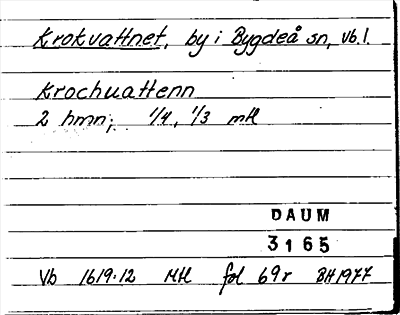 Krokvattnet, by i Bygdeå sn, Vb.l.
Krochuattenn
2 hmn; 1/4, 1/3 mtl
DAUM
3165
Vb 1619:12 Mtl fol 69r BH1977